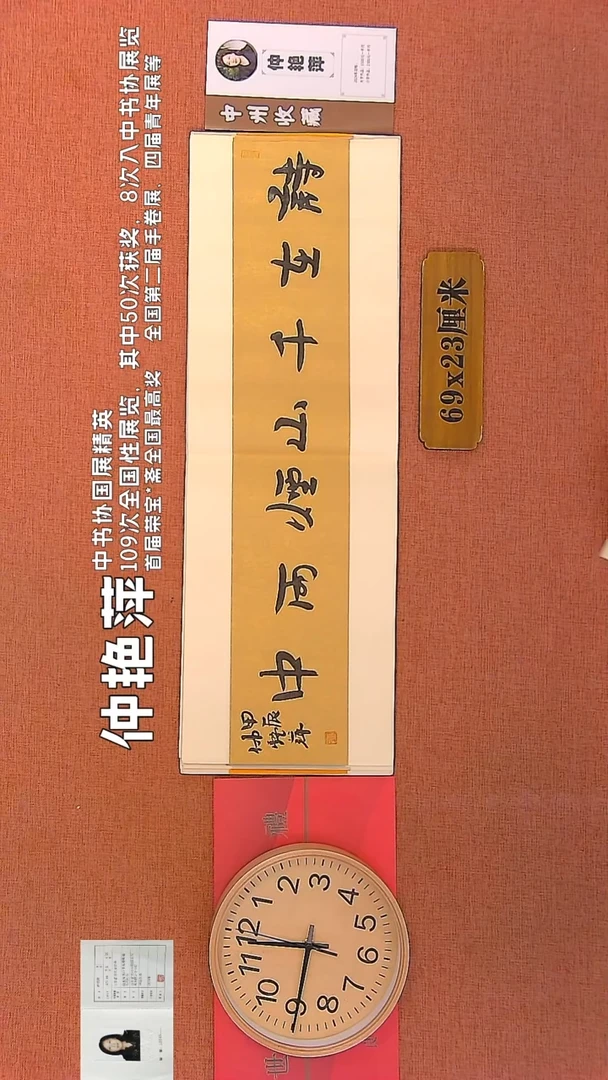 仲艳萍
中书协国展精英
109次全国性展览，其中50次获奖，8次入中书协展览
首届荣宝*斋全国最高奖 全国第二届手卷展、四届青年展等
詩在千山煙雨中
甲辰
仲艳萍
中州收藏
69x23厘米
禮
世
12
1
2
3
4
5
6
7
8
9
10
11